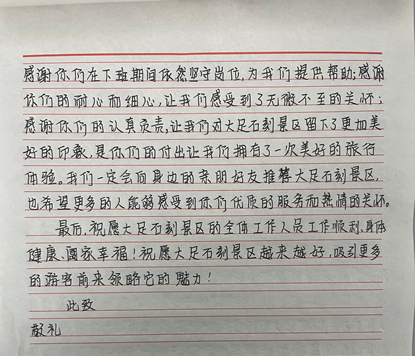 感谢你们在下班期间依然坚守岗位,为我们提供帮助;感谢
你们的耐心而细心,让我们感受到了无微不至的关怀;
感谢你们的认真负责,让我们对大足石刻景区留下了更加美
好的印象,是你们的付出让我们拥有了一次美好的旅行
体验。我们一定会向身边的亲朋好友推荐大足石刻景区,
也希望更多的人能够感受到你们优质的服务而热情的关怀。
最后,祝愿大足石刻景区的全体工作人员工作顺利、身体
健康、阖家幸福!祝愿大足石刻景区越来越好,吸引更多
的游客前来领略它的魅力!
此致
敬礼